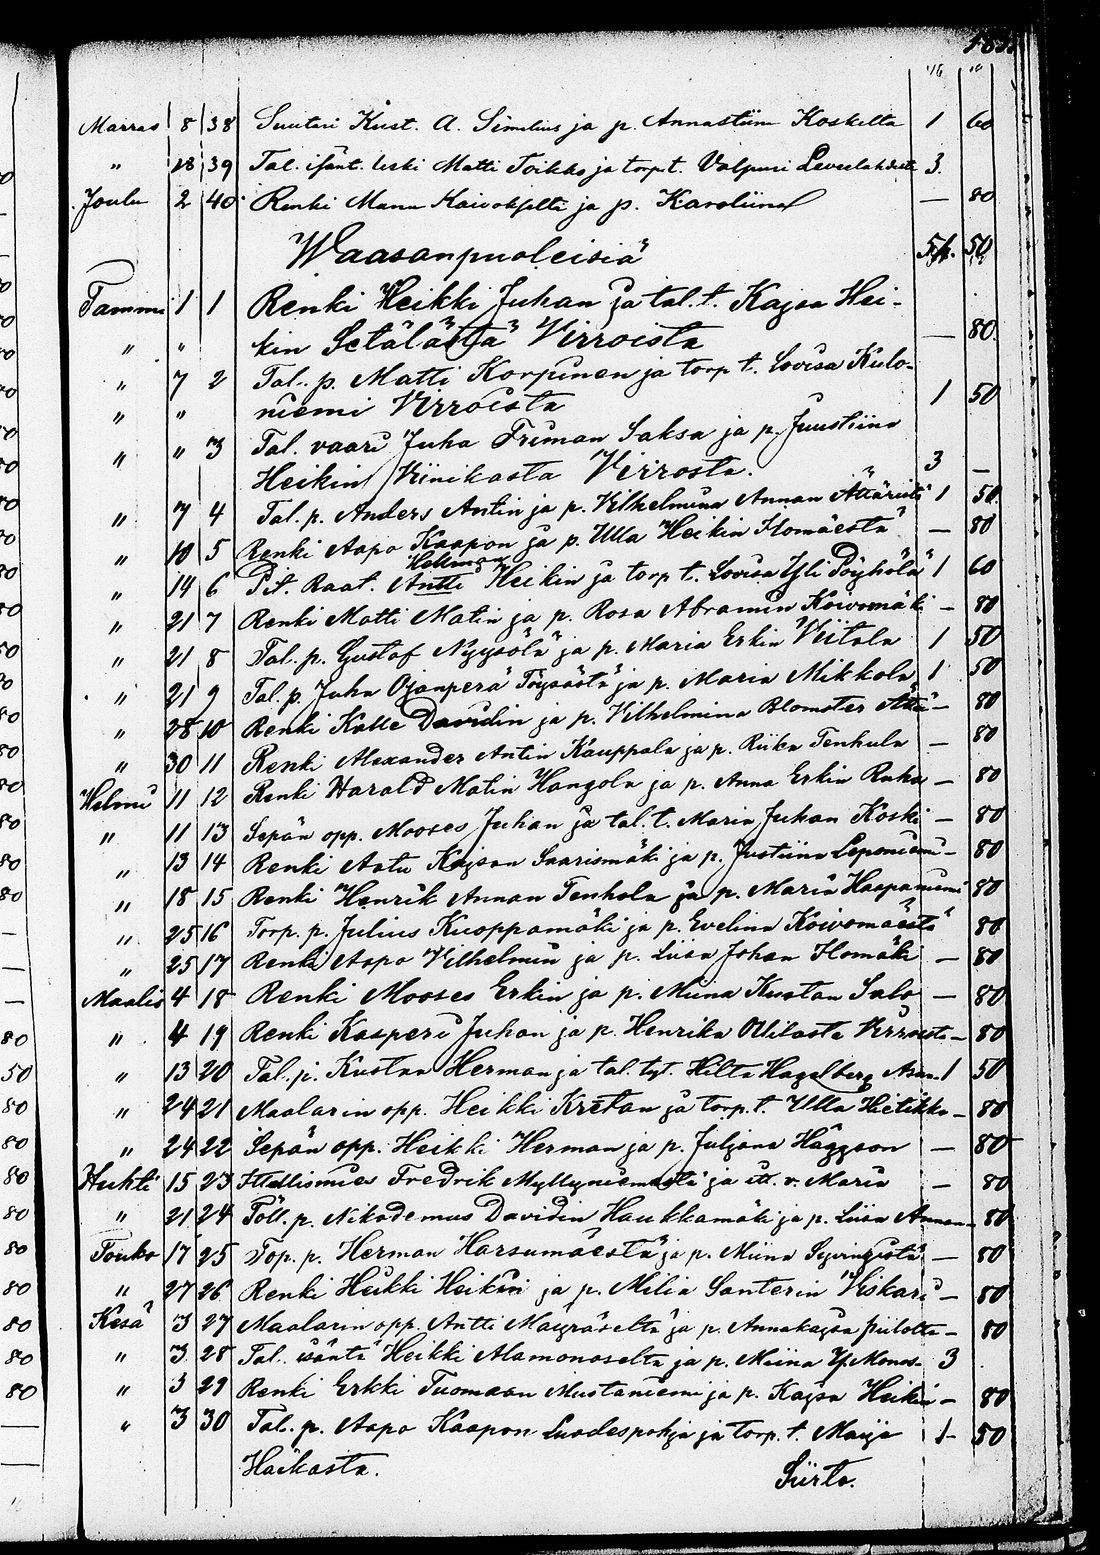 Marras 8 38 Suutari Kust. A. Similius ja p. Annastiina Koskelta 1 60
" 18 39 Tal. isänt. leski Matti Toikko ja torp. t. Valpuri 3.
Joulu 2 40 Renki Manu ja p. Karoliina — 80
Waasanpuoleisiä 50
Tammi 1 1 Renki Heikki Juhan ja tal. t. Kajsa Hei-
" " kin Setälästä Virroista — 80
" 7 2 Tal. p. Matti Korpinen ja torp t. Lovisa Kulo-
" " niemi Virroista 1 50
" " 3 Tal. vaari Juha Friman Saksa ja p. Juustiina
Heikin Viinikasta Virrosta. 3 —
" 7 4 Tal. p. Anders Antin ja p. Vilhelmina Annan Ätäristä 1 50
" 10 5 Renki Aapo Kaapon ja p. Ulla Heikin Homäestä — 80
" 14 6 Pit. Raat. Antti Heikin ja torp t. Lovisa Yli Pöyhölä 1 60
" 21 7 Renki Matti Matin ja p. Rosa Abramin Koivomäki — 80
" 21 8 Tal. p. Gustaf Nyysölä ja p. Maria Erkin Viitala 1 50
" 21 9 Tal. p. Juha Ojanperä Töysästä ja p. Maria Mikkola 1 50
" 28 10 Renki Kalle Davidin ja p. Vilhelmina Blomster Ätä — 80
" 30 11 Renki Alexander Antin Kauppala ja p. Riika Tenhula — 80
Helmi 11 12 Renki Harald Matin Hangola ja p. Anna Erkin Ruha — 80
" 11 13 Sepän opp. Mooses Juhan ja tal. t. Maria Juhan Koski — 80
" 13 14 Renki Aatu Kajsan Saarismäki ja p. Justiina Leponiemi — 80
" 18 15 Renki Henrik Annan Tenhola ja p. Maria Haapaniemi 80
" 25 16 Torp. p. Julius Kuoppamäki ja p. Evelina Koivomäestä 80
" 25 17 Renki Aapo Vilhelmin ja p. Liisa Johan Homäki — 80
Maalis 4 18 Renki Mooses Erkin ja p. Miina Kustan Salo — 80
" 4 19 Renki Kasperi Juhan ja p. Henrika Ollilasta Virroista — 80
" 13 20 Tal. p. Kustaa Herman ja tal. tyt. Hilta Hagelberg 1 50
" 24 21 Maalarin opp. Heikki Kretan ja torp. t. Ulla Hietikko — 80
" 24 22 Sepän opp. Heikki Herman ja p. Juljana Häggson — 80
Huhti 15 23 Itellismies Fredrik Myllyniemestä ja itt. v. Maria — 80
" 21 24 Töll. p. Nikodemus Davidin Haukkamäki ja p. Liisa Annan — 80
Touko 17 25 Top. p. Herman Harsumäestä ja p. Miina — 80
" 27 26 Renki Heikki Heikin ja p. Milia Santerin Viskari — 80
Kesä 3 27 Maalarin opp. Antti Mäyräseltä ja p. Annakajsa — 80
" 3 28 Tal. isäntä Heikki Alamonoselta ja p. Miina Y. Monos 3
" 3 29 Renki Erkki Tuomaan Mustaniemi ja p. Kajsa Heikin — 80
" 3 30 Tal. p. Aapo Kaapon Luodespohja ja torp. t. Maija 1 50
Häikästä.
Siirto.